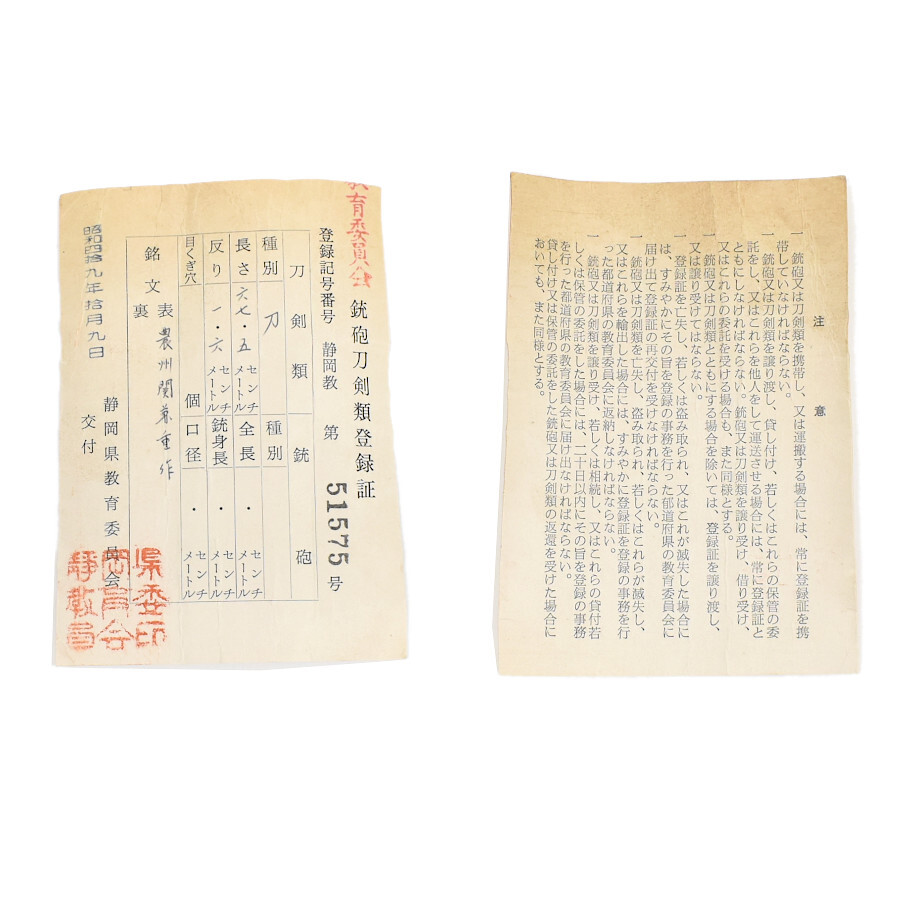 教育委員会
銃砲刀剣類登録証
登録記号番号 静岡教 第 51575 号
刀剣類 銃砲
種別 刀 種別
長さ 六七・五 センチメートル 全長 ・ センチメートル
反り 一・六 センチメートル 銃身長 ・ センチメートル
目くぎ穴 個 口径 ・ センチメートル
銘文 表 濃州関兼重作
裏
昭和四拾九年拾月九日
静岡県教育委員会
交付
県委印
岡育会
静教員
注意
一 銃砲又は刀剣類を携帯し、又は運搬する場合には、常に登録証を携
帯していなければならない。
一 銃砲又は刀剣類を譲り渡し、貸し付け、若しくはこれらの保管の委
託をし、又はこれらを他人をして運送させる場合には、常に登録証と
ともにしなければならない。銃砲又は刀剣類を譲り受け、借り受け、
又はこれらの委託を受ける場合も、また同様とする。
一 銃砲又は刀剣類とともにする場合を除いては、登録証を譲り渡し、
又は譲り受けてはならない。
一 登録証を亡失し、若しくは盗み取られ、又はこれが滅失した場合に
は、すみやかにその旨を登録の事務を行った都道府県の教育委員会に
届け出て登録証の再交付を受けなければならない。
一 銃砲又は刀剣類を亡失し、盗み取られ、若しくはこれらが滅失し、
又はこれらを輸出した場合には、すみやかに登録証を登録の事務を行
った都道府県の教育委員会に返納しなければならない。
一 銃砲又は刀剣類を譲り受け、若しくは相続し、又はこれらの貸付若
しくは保管の委託をした場合には、二十日以内にその旨を登録の事務
を行った都道府県の教育委員会に届け出なければならない。
貸し付け又は保管の委託をした銃砲又は刀剣類の返還を受けた場合に
おいても、また同様とする。